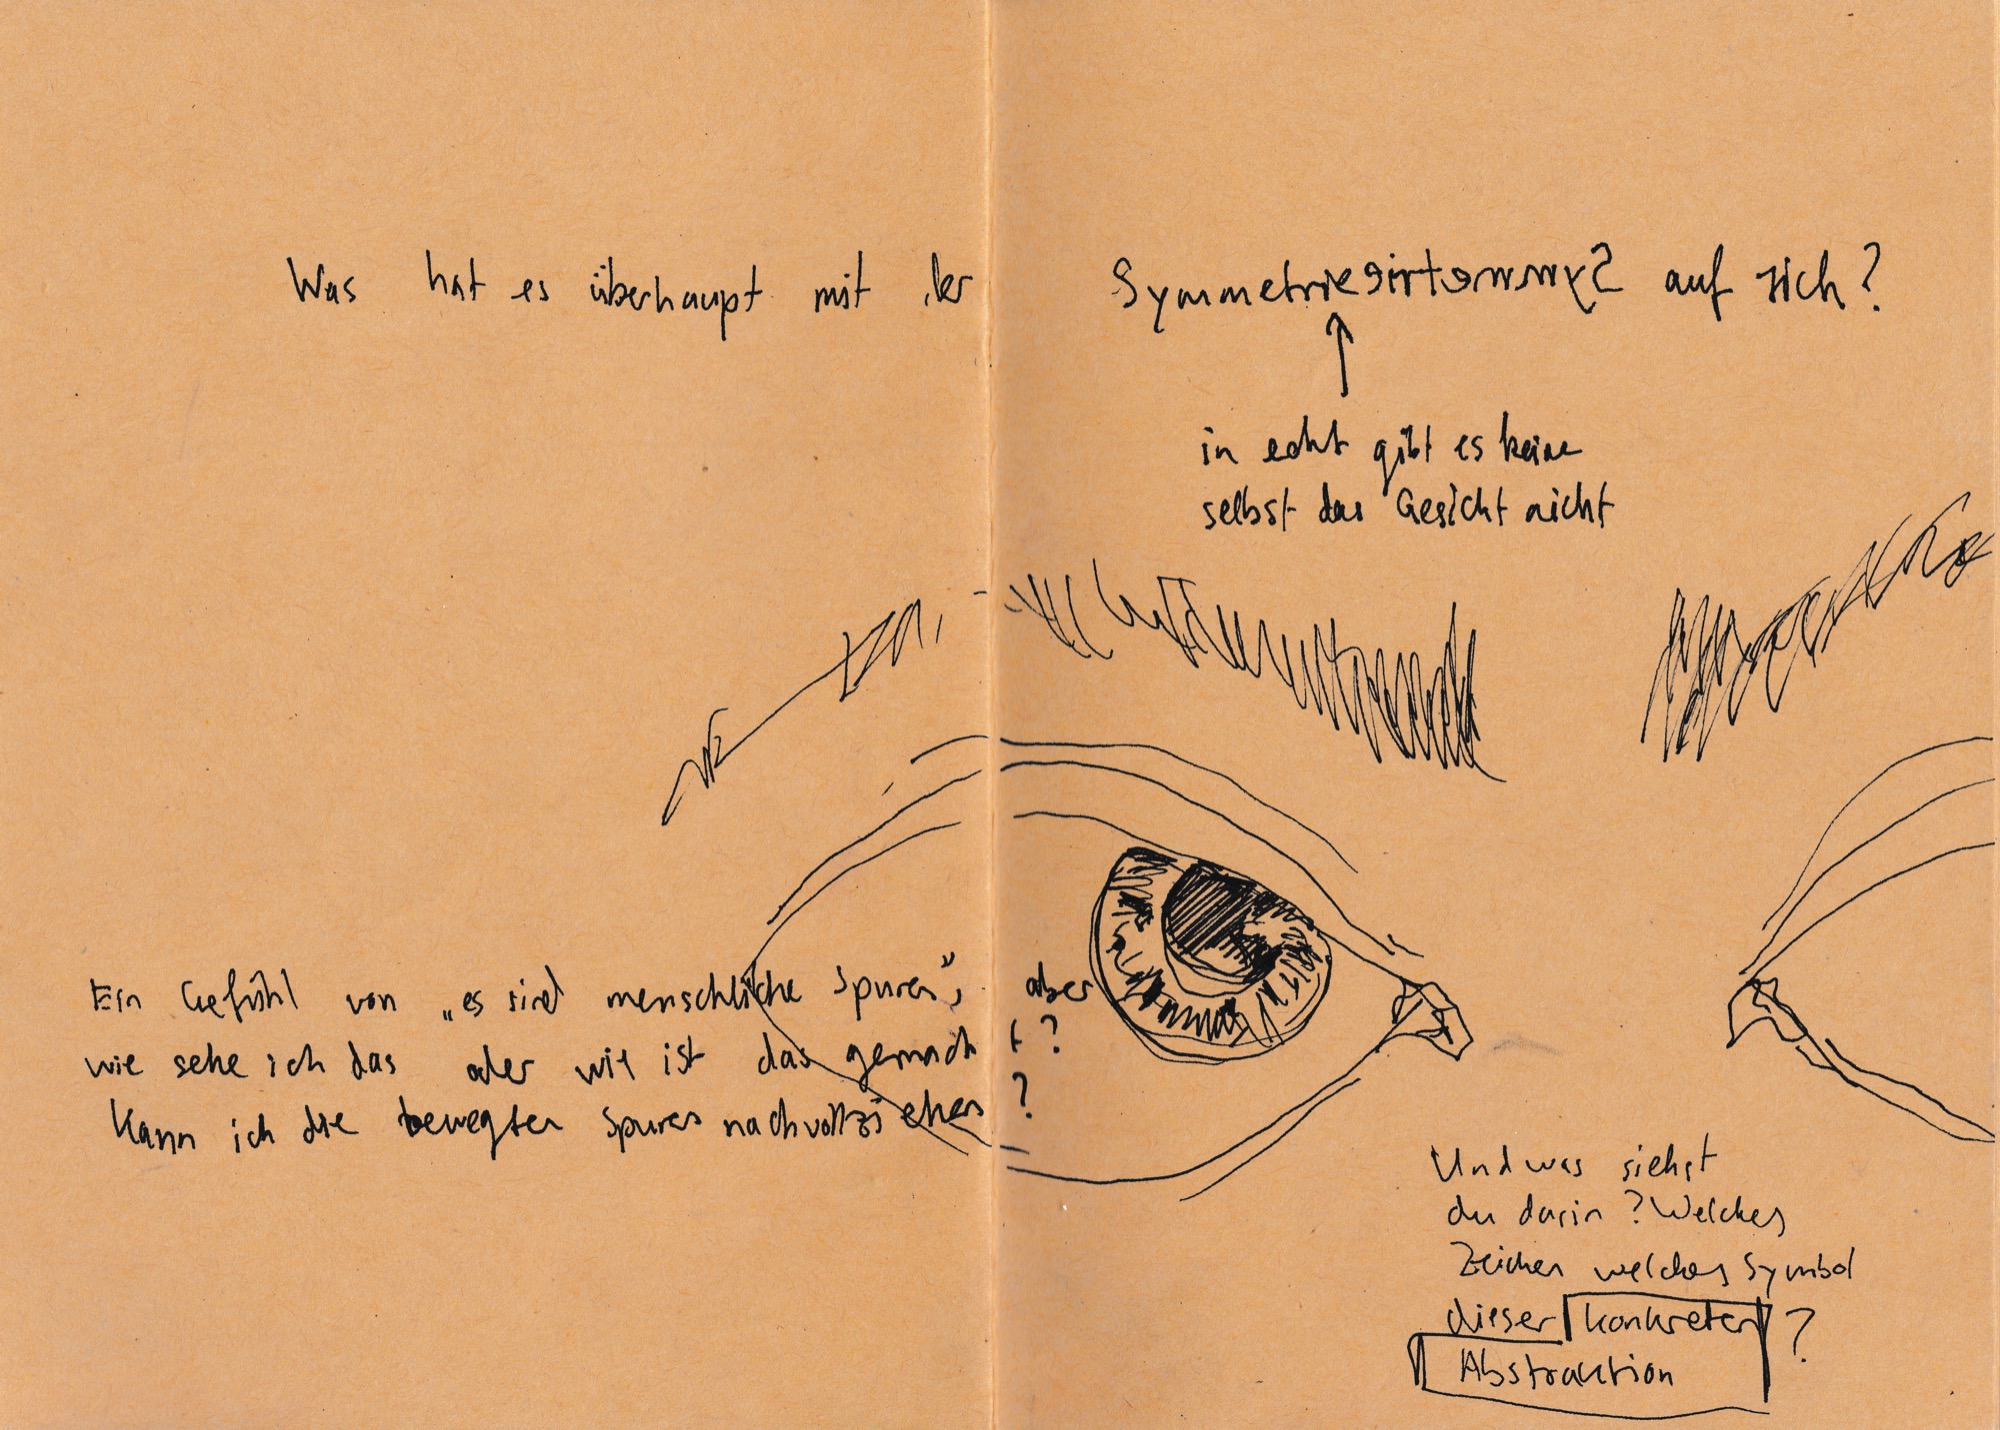 Was hat es überhaupt mit der SymmetrieeirtemmyS auf sich?
in echt gibt es keine
selbst das Gesicht nicht
Ein Gefühl von „es sind menschliche Spuren", aber
wie sehe ich das oder wie ist das gemacht?
Kann ich die bewegten Spuren nachvollziehen?
Und was siehst
du darin? Welches
Zeichen welches Symbol
dieser konkreten?
Abstraktion